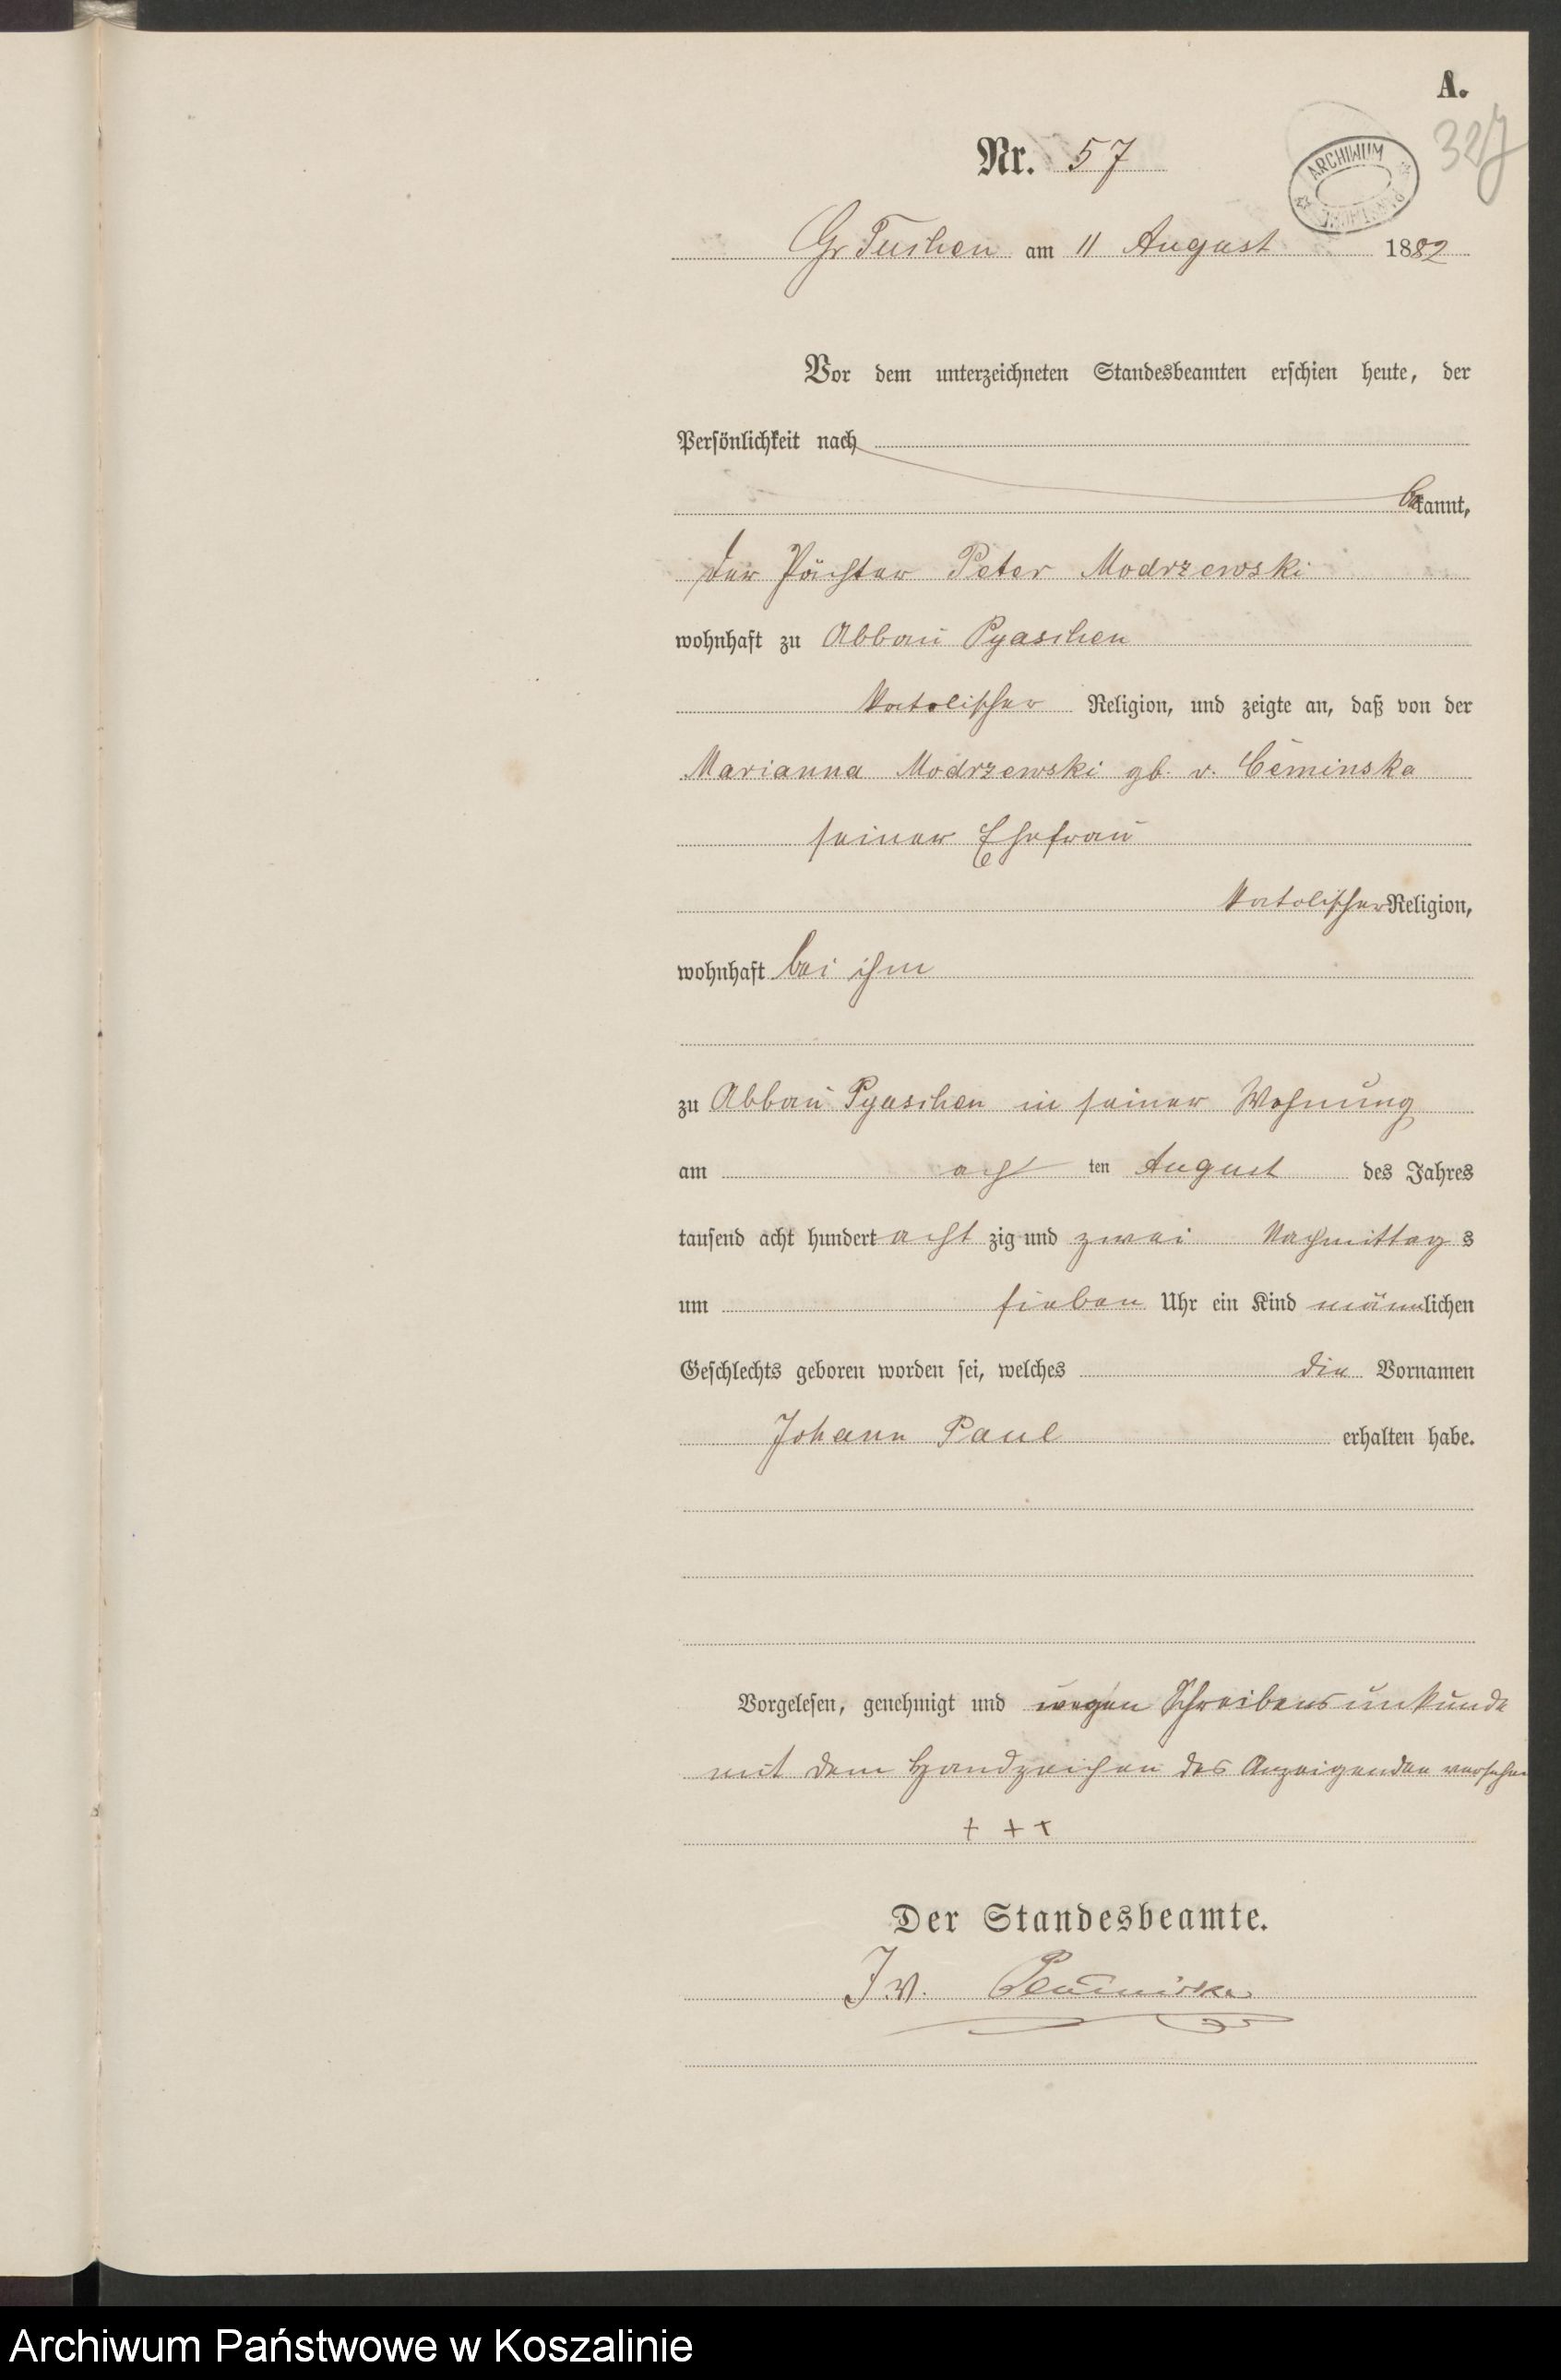 A.
327
Nr. 57
ARCHIWUM
PAŃSTWOWE
Gr Tuchen am 11 August 1882
Vor dem unterzeichneten Standesbeamten erschien heute, der
Persönlichkeit nach
bekannt,
der Pächter Peter Modrzewski
wohnhaft zu Abbau Pyaschen
katolischer Religion, und zeigte an, daß von der
Marianna Modrzewski gb. v. Ceminska
seiner Ehefrau
katolischer Religion,
wohnhaft bei ihm
zu Abbau Pyaschen in seiner Wohnung
am acht ten August des Jahres
tausend acht hundert acht zig und zwei Nachmittag s
um sieben Uhr ein Kind männlichen
Geschlechts geboren worden sei, welches die Vornamen
Johann Paul erhalten habe.
Vorgelesen, genehmigt und wegen Schreibensunkunde
mit dem Handzeichen des Anzeigenden versehen
+ + +
Der Standesbeamte.
J V.
Archiwum Państwowe w Koszalinie